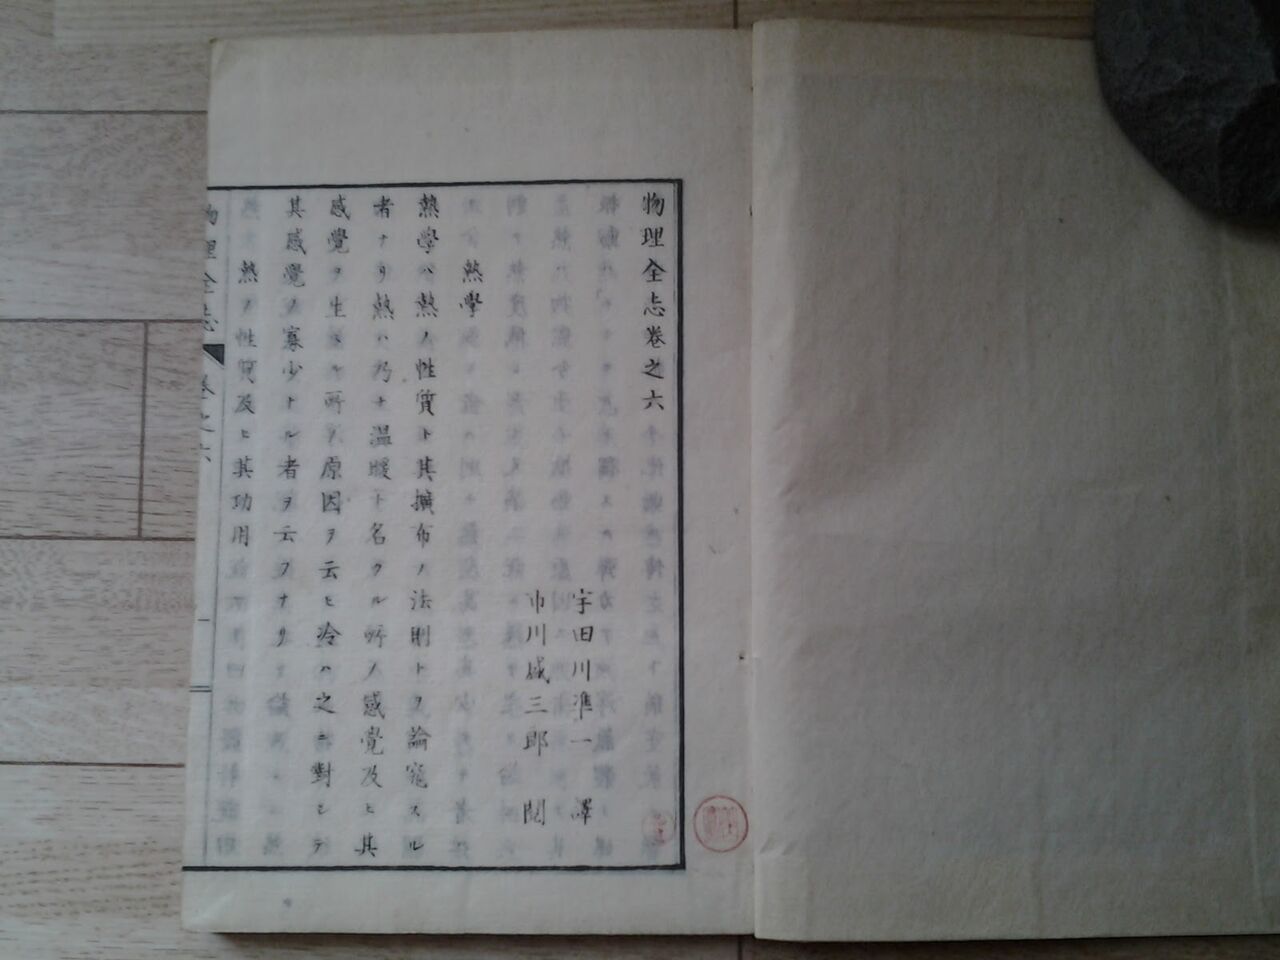 物理全志卷之六
宇田川準一 譯
市川盛三郎 閲
熱學
熱學ハ熱ノ性質ト其擴布ノ法則トヲ論究スル
者ナリ熱ハ乃チ温暖ト名クル所ノ感覺及ヒ其
感覺ヲ生スル所ノ原因ヲ云ヒ冷ハ之ニ對シテ
其感覺ノ寡少ナル者ヲ云フナリ
熱ノ性質及ヒ其功用
物理全志 卷之六